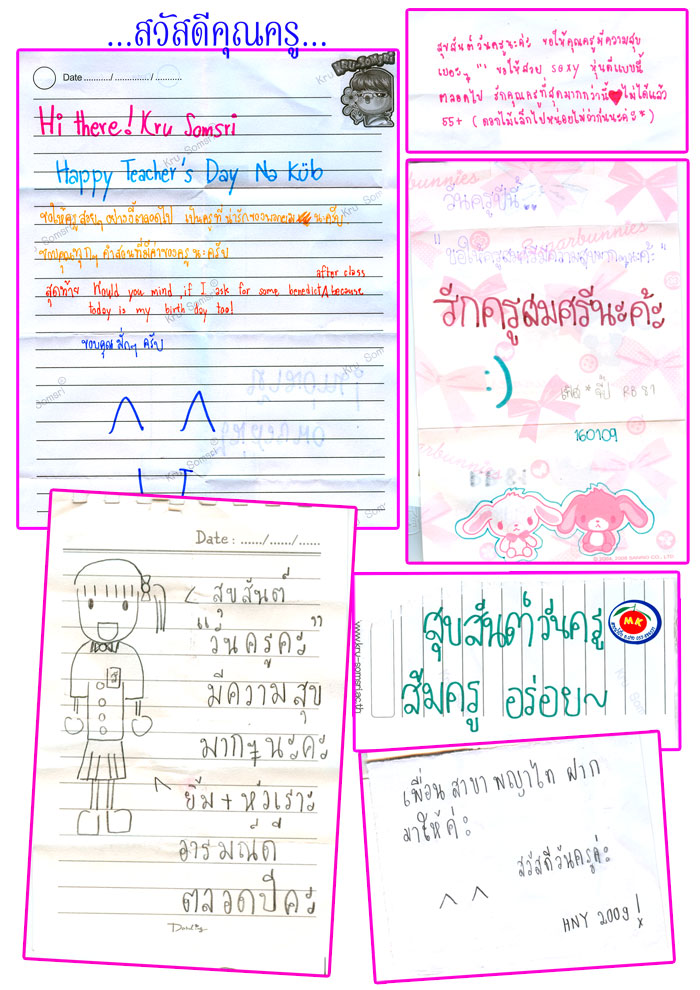 ...สวัสดีคุณครู...
Date ........../............../..........
Kru-Somsri
Hi there! Kru Somsri
Happy Teacher's Day Na Küb
ขอให้ครูสวยๆ อย่างนี้ตลอดไป เป็นครูที่น่ารักของพวกผม นะครับ
ขอบคุณทุกๆ คำสอนที่มีค่าของครูนะครับ
after class
สุดท้าย Would you mind, if I ask for some benedict because
today is my birth day too!
ขอบคุณมั่กๆ ครับ
สุขสันต์วันครูนะค่ะ ขอให้คุณครูมีความสุข
เยอะๆ "' ขอให้สวย sexy หุ่นดีแบบนี้
ตลอดไป รักคุณครูที่สุดมากกว่านี้♥ไม่ได้แล้ว
55+ (ดอกไม้เล็กไปหน่อยไม่ว่ากันนะค่ะ*)
วันครูปีนี้..
"ขอให้ครูสมศรีมีความสุขมากๆนะค้ะ"
รักครูสมศรีนะค้ะ
:)
RB 81
160109
© 2004, 2008 SANRIO CO., LTD.
Date : ....../....../......
< สุขสันต์
วันครูค่ะ
มีความสุข
มากๆ นะคะ
ยิ้ม + หัวเราะ
อารมณ์ดี
ตลอดปีค่ะ
www.kru-somsri.ac.th
สุขสันต์วันครู
MK
ส้มครู อร่อย~
เพื่อน สาขา พญาไท ฝาก
มาให้ค่ะ
สวัสดีวันครูค่ะ
^ ^
HNY 2009!